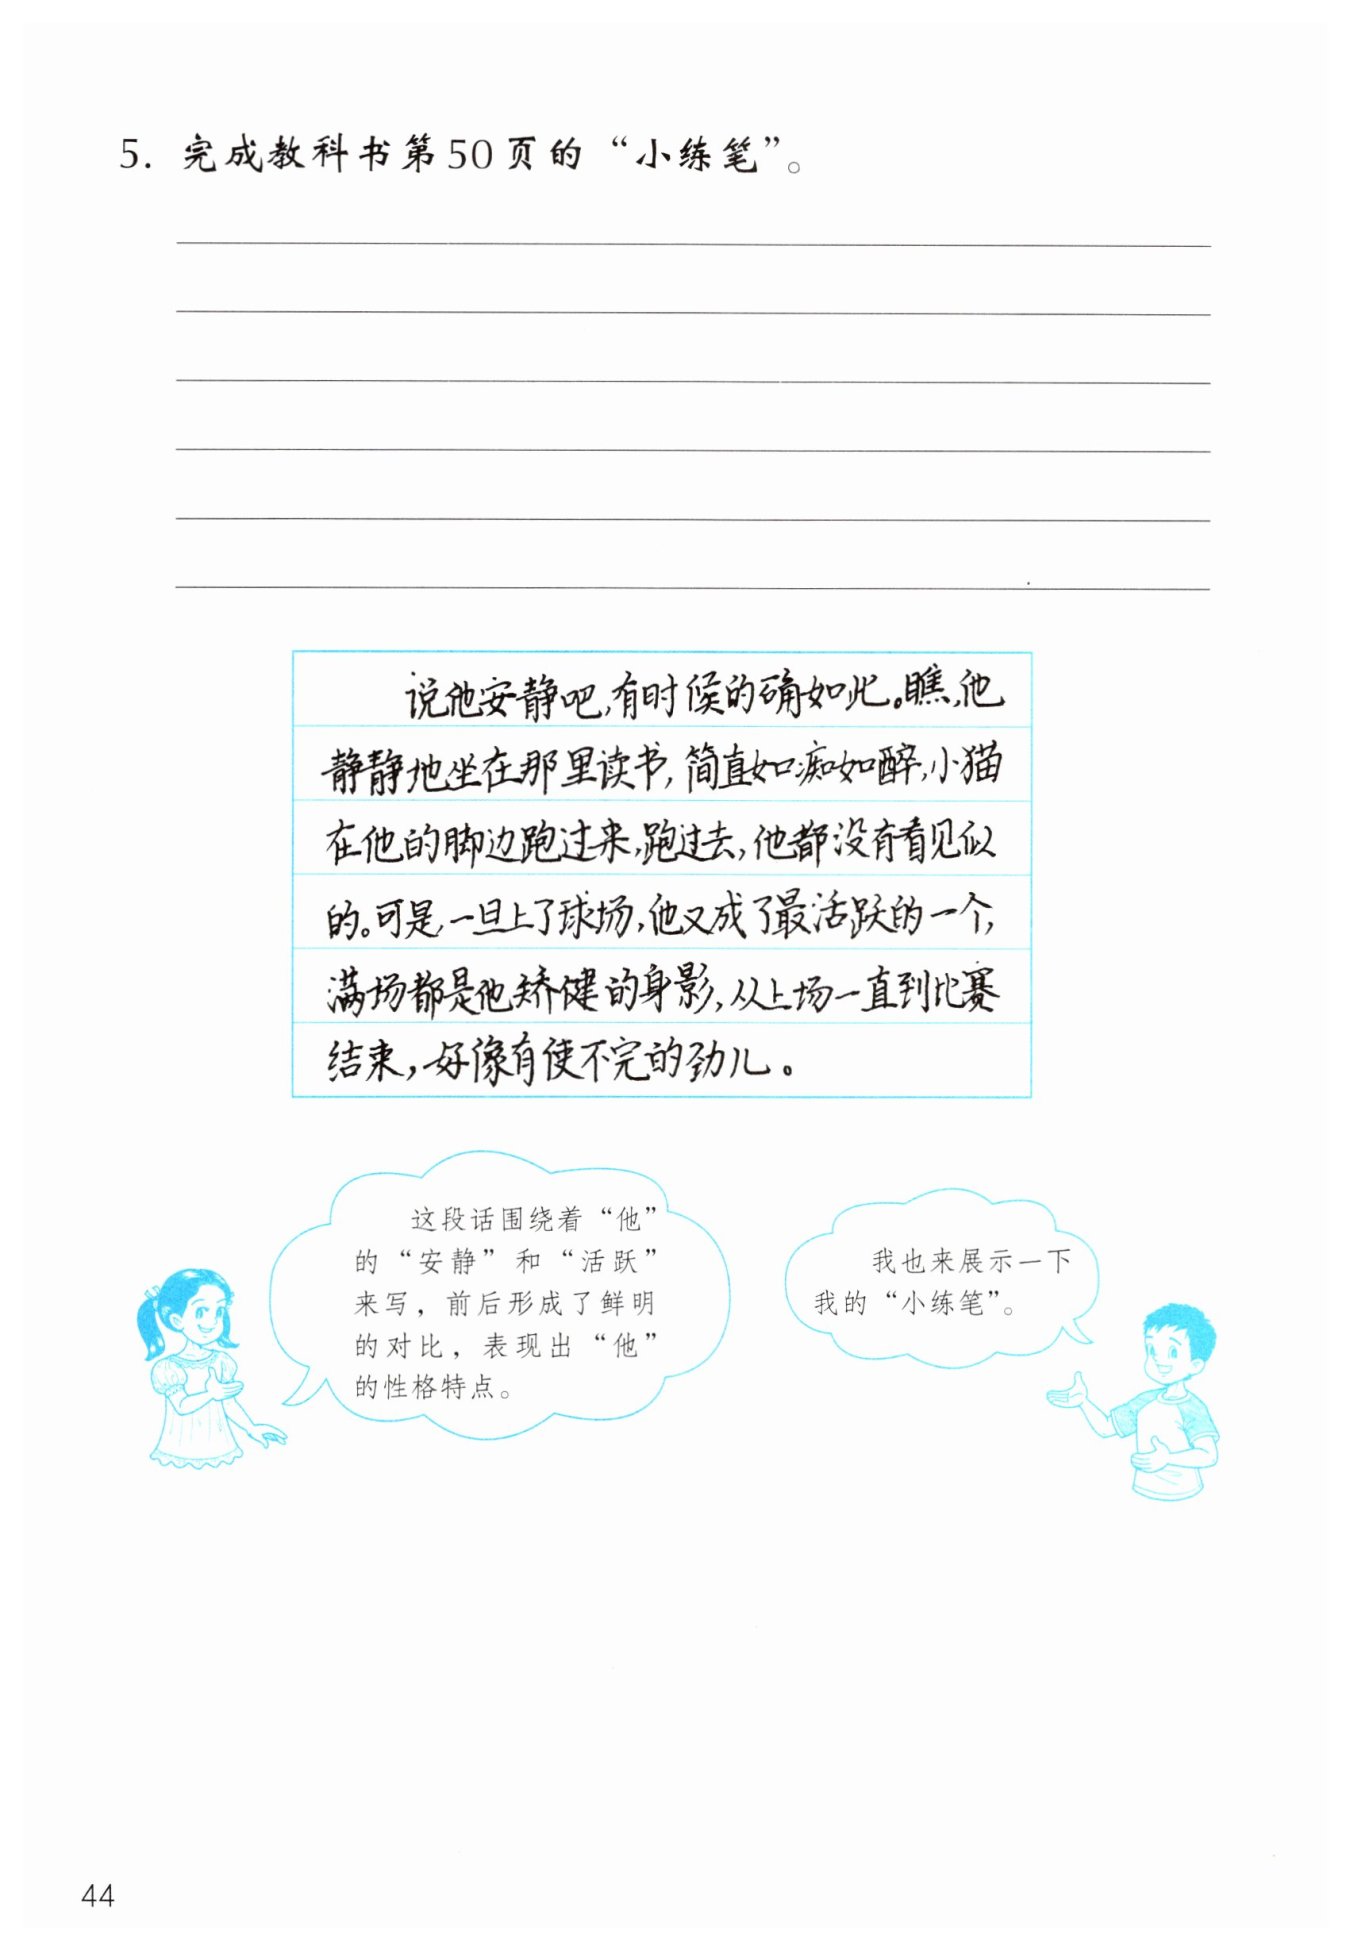 5. 完成教科书第50页的“小练笔”。
说他安静吧，有时候的确如此。瞧，他
静静地坐在那里读书，简直如痴如醉，小猫
在他的脚边跑过来，跑过去，他都没有看见似
的。可是，一旦上了球场，他又成了最活跃的一个，
满场都是他矫健的身影，从上场一直到比赛
结束，好像有使不完的劲儿。
这段话围绕着“他”
的“安静”和“活跃”
来写，前后形成了鲜明
的对比，表现出“他”
的性格特点。
我也来展示一下
我的“小练笔”。
44